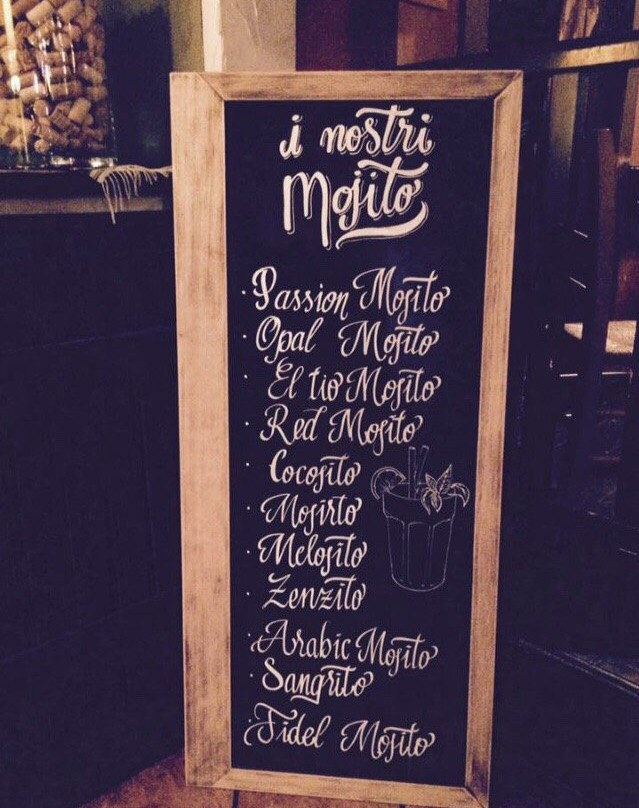 i nostri
Mojito
· Passion Mojito
· Opal Mojito
· El tio Mojito
· Red Mojito
· Cocojito
· Mojirto
· Melojito
· Zenzito
· Arabic Mojito
· Sangrito
· Fidel Mojito